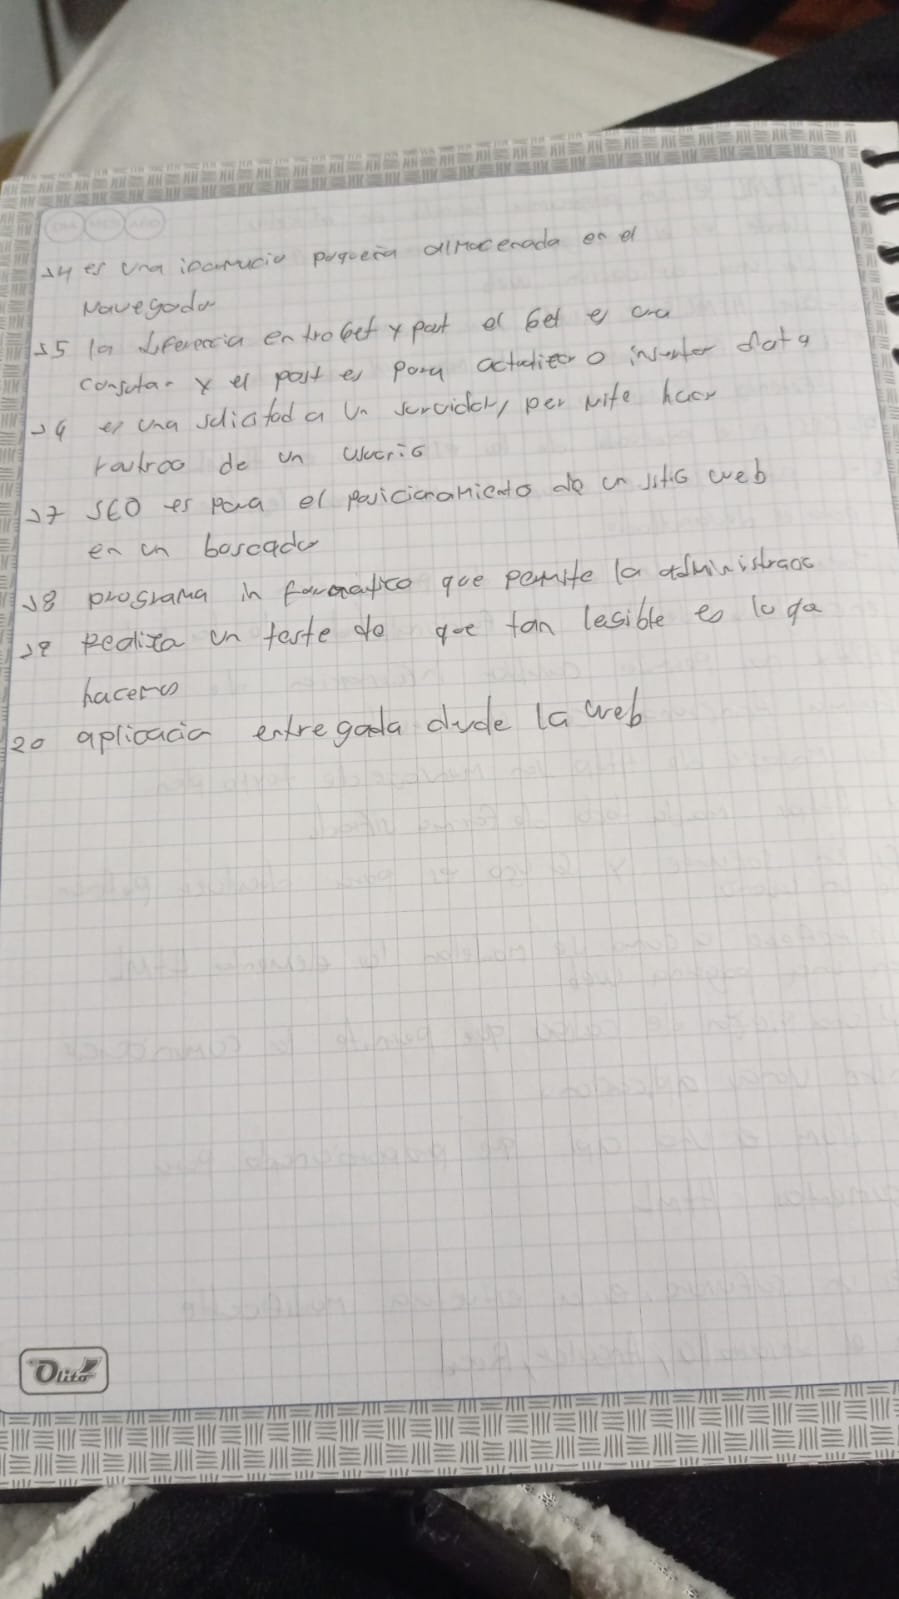 14 es una incamucio pequeña almacenada en el
Navegador
15 la diferencia entro Get y post el Get es
Consultar y el post es para actualizar o insertar data
16 es una solicitod a un servidor, permite hacer
de un usuario
17 SEO es para el posicionamiento de un sitio web
en un boscador
18 programa informatico que permite la administrac
19 Realiza un teste do que tan lesible es lo qa
hacemos
20 aplicacia entregada dude la web
Olito